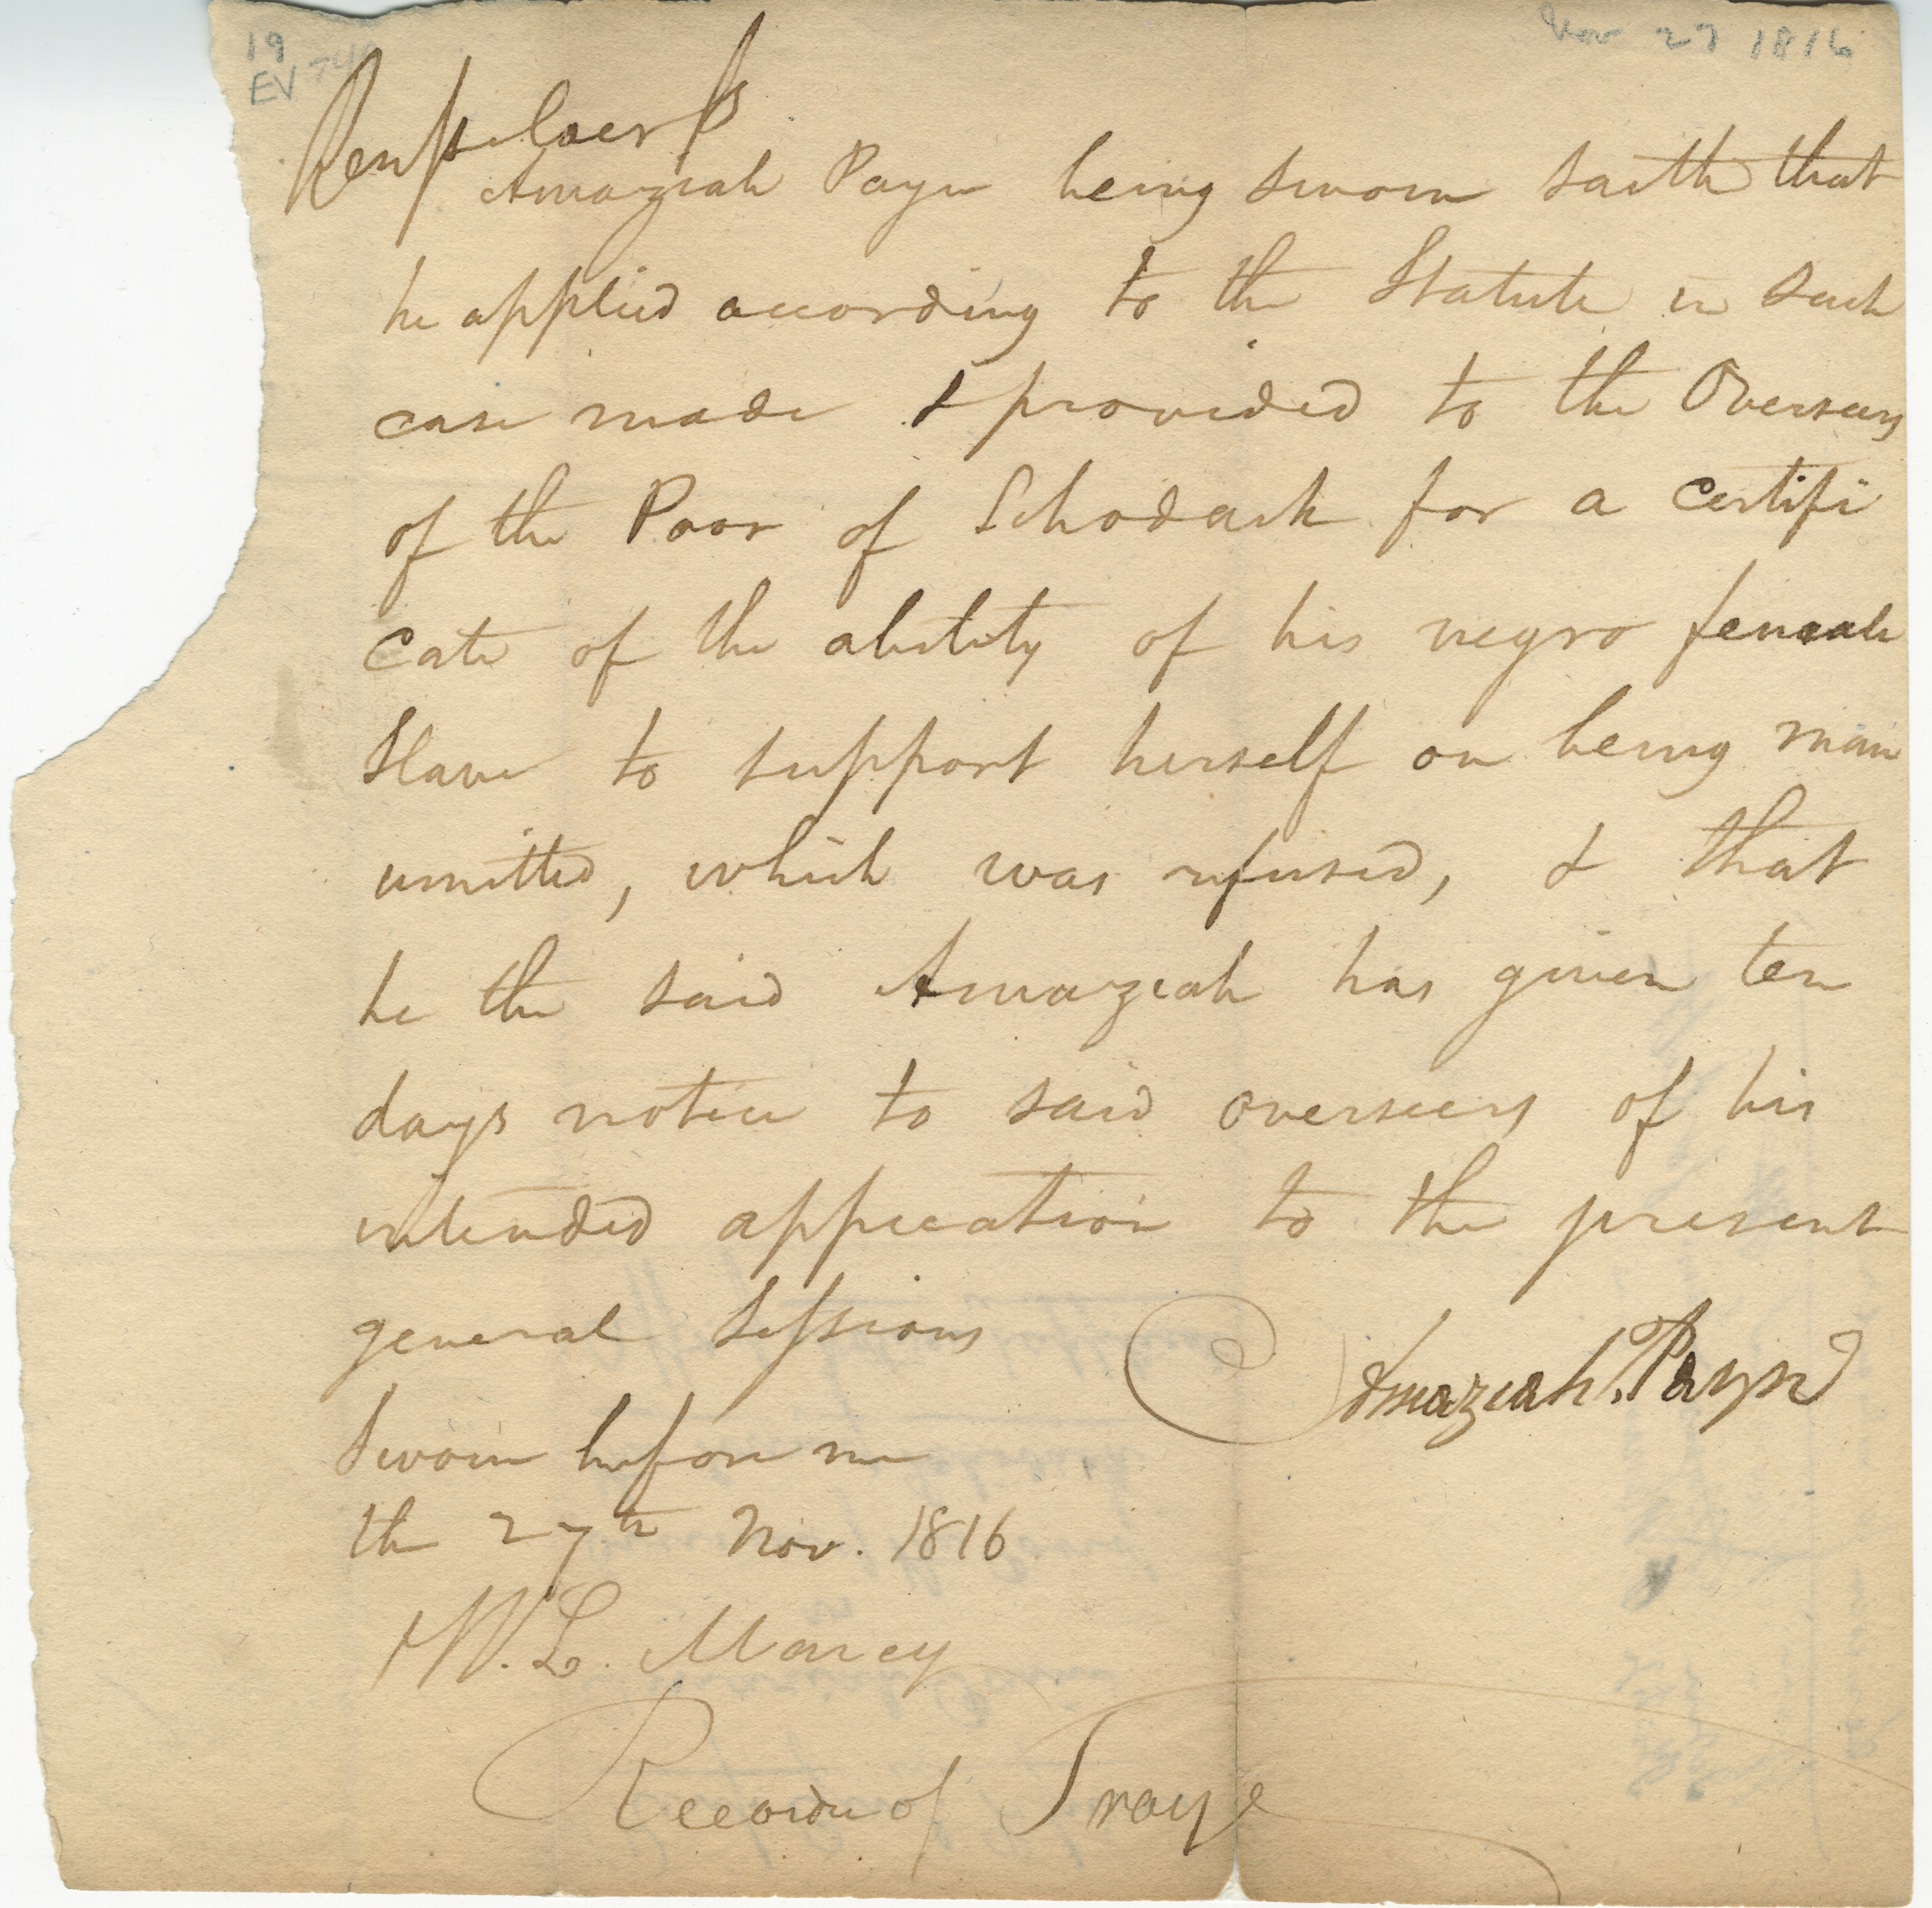 19
EV 74
Nov 27 1816
Rensselaer Ss
Amaziah Payn being sworn saith that
he applied according to the Statute in such
case made & provided to the Overseers
of the Poor of Schodack for a certifi
cate of the ability of his negro female
Slave to support herself on being man
umitted, which was refused, & that
he the said Amaziah has given ten
days notice to said overseers of his
intended appication to the present
general Sessions
Amaziah Payn
Sworn before me
the 27th Nov. 1816
W. L. Marcy
Recorder of Troy